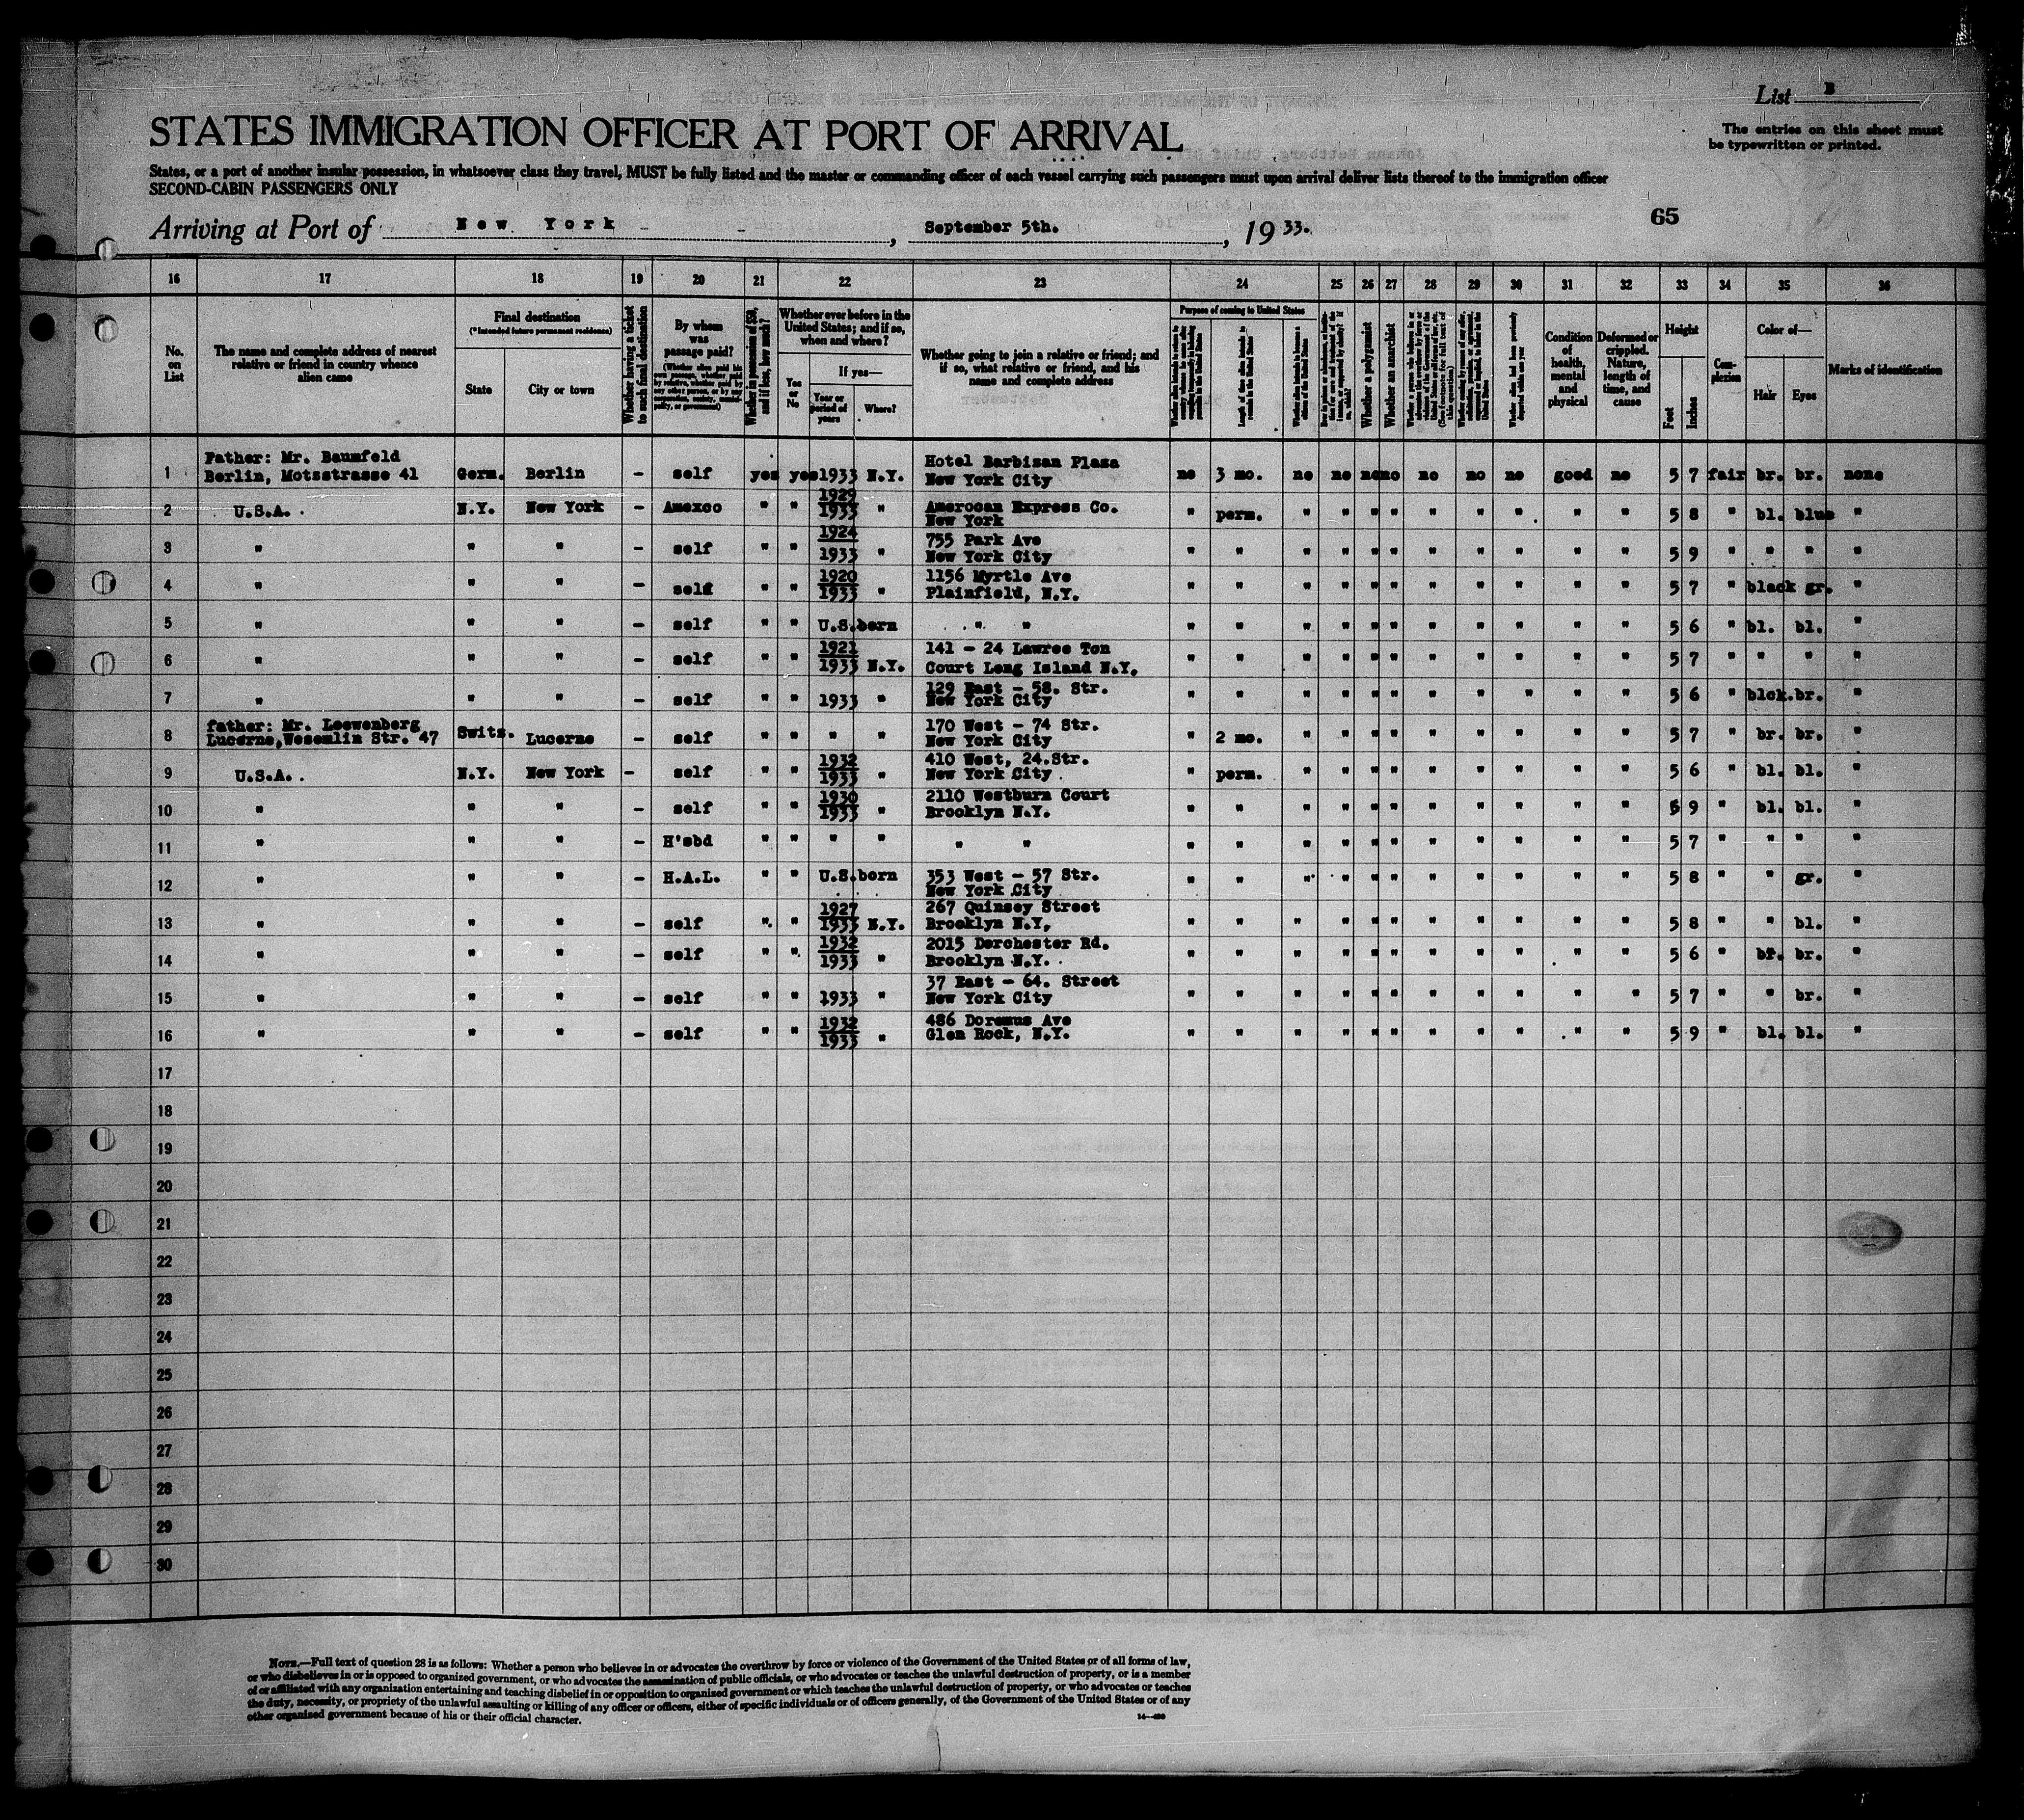 List B
The entries on this sheet must
be typewritten or printed.
STATES IMMIGRATION OFFICER AT PORT OF ARRIVAL
States, or a port of another insular possession, in whatsoever class they travel, MUST be fully listed and the master or commanding officer of each vessel carrying such passengers must upon arrival deliver lists thereof to the immigration officer
SECOND-CABIN PASSENGERS ONLY
65
Arriving at Port of New York, September 5th., 1933.
16 17 18 19 20 21 22 23 24 25 26 27 28 29 30 31 32 33 34 35 36
No. on List
The name and complete address of nearest relative or friend in country whence alien came
Final destination
(*Intended future permanent residence)
State
City or town
Whether having a ticket to such final destination
By whom was passage paid?
Whether in possession of $50, and if less, how much?
Whether ever before in the United States; and if so, when and where?
Yes or No
If yes—
Year or period of years
Where?
Whether going to join a relative or friend; and if so, what relative or friend, and his name and complete address
Purpose of coming to United States
Whether a polygamist
Whether an anarchist
Condition of health, mental and physical
Deformed or crippled. Nature, length of time, and cause
Height
Feet
Inches
Complexion
Color of—
Hair
Eyes
Marks of identification
1 Father: Mr. Baumfeld
Berlin, Motzstrasse 41 Germ. Berlin – self yes yes 1933 N.Y. Hotel Barbizan Plaza
New York City no 3 mo. no no no no no no no good no 5 7 fair br. br. none
2 U.S.A. N.Y. New York – Amexco " " 1929
1933 " Amerocan Express Co.
New York " perm. " " " " " " " " " 5 8 " bl. blue "
3 " " " – self " " 1924
1933 " 755 Park Ave
New York City " " " " " " " " " " " 5 9 " " " "
4 " " " – self " " 1920
1933 " 1156 Myrtle Ave
Plainfield, N.Y. " " " " " " " " " " " 5 7 " black gr. "
5 " " " – self " " U.S.born " " " " " " " " " " " " " 5 6 " bl. bl. "
6 " " " – self " " 1921
1933 N.Y. 141 – 24 Lawree Ton
Court Long Island N.Y. " " " " " " " " " " " 5 7 " " " "
7 " " " – self " " 1933 " 129 East – 58. Str.
New York City " " " " " " " " " " " 5 6 " blck. br. "
8 father: Mr. Loewenberg
Lucerne, Wesemlin Str. 47 Switz. Lucerne – self " " " " 170 West – 74 Str.
New York City " 2 mo. " " " " " " " " " 5 7 " br. br. "
9 U.S.A. N.Y. New York – self " " 1932
1933 " 410 West, 24.Str.
New York City " perm. " " " " " " " " " 5 6 " bl. bl. "
10 " " " – self " " 1930
1933 " 2110 Westburn Court
Brooklyn N.Y. " " " " " " " " " " " 5 9 " bl. bl. "
11 " " " – H'sbd " " " " " " " " " " " " " " " " " 5 7 " " " "
12 " " " – H.A.L. " " U.S.born 353 West – 57 Str.
New York City " " " " " " " " " " " 5 8 " " gr. "
13 " " " – self " " 1927
1933 N.Y. 267 Quinsey Street
Brooklyn N.Y, " " " " " " " " " " " 5 8 " " bl. "
14 " " " – self " " 1932
1933 " 2015 Dorchester Rd.
Brooklyn N.Y. " " " " " " " " " " " 5 6 " br. br. "
15 " " " – self " " 1933 " 37 East – 64. Street
New York City " " " " " " " " " " " 5 7 " " br. "
16 " " " – self " " 1932
1933 " 486 Doremus Ave
Glen Rock, N.Y. " " " " " " " " " " " 5 9 " bl. bl. "
17
18
19
20
21
22
23
24
25
26
27
28
29
30
NOTE.—Full text of question 28 is as follows: Whether a person who believes in or advocates the overthrow by force or violence of the Government of the United States or of all forms of law,
or who disbelieves in or is opposed to organized government, or who advocates the assassination of public officials, or who advocates or teaches the unlawful destruction of property, or is a member
of or affiliated with any organization entertaining and teaching disbelief in or opposition to organized government or which teaches the unlawful destruction of property, or who advocates or teaches
the duty, necessity, or propriety of the unlawful assaulting or killing of any officer or officers, either of specific individuals or of officers generally, of the Government of the United States or of any
other organized government because of his or their official character.